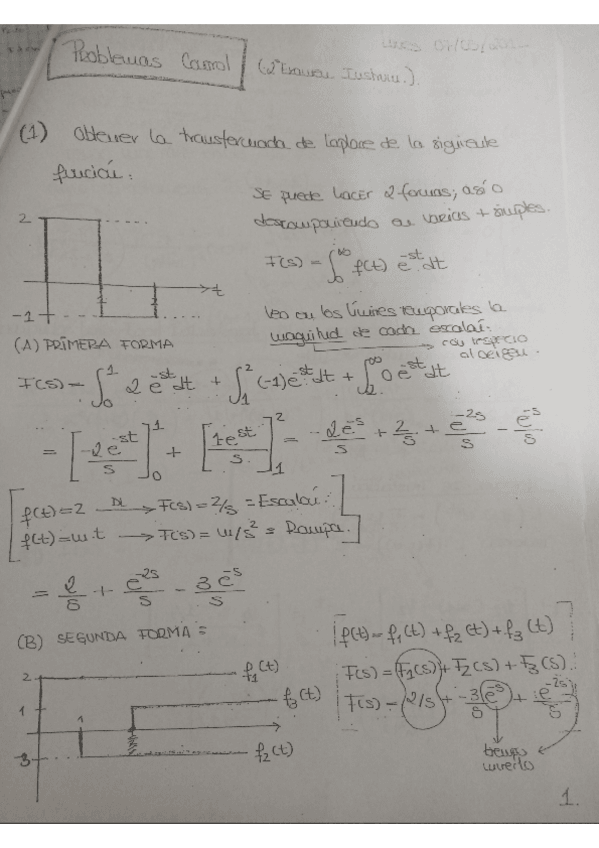 Problemas Carrol (2º Examen Instrum.).
(1) Obtener la transformada de laplace de la siguiente
función:
Se puede hacer 2 formas; así o
descomponiendo en varias + simples.
F(s) = ∫₀^∞ f(t) e^-st dt
2
t
1
2
-1
Veo en los límites temporales la
magnitud de cada escalón.
con respecto
al origen.
(A) PRIMERA FORMA
F(s) = ∫₀¹ 2 e^-st dt + ∫₁² (-1) e^-st dt + ∫₂^∞ 0 e^-st dt
= [-2e^-st/s]₀¹ + [1e^-st/s]₁² = -2e^-s/s + 2/s + e^-2s/s - e^-s/s
f(t) = 2 → F(s) = 2/s = Escalón.
f(t) = mt → F(s) = m/s² = Rampa.
= 2/s + e^-2s/s - 3e^-s/s
(B) SEGUNDA FORMA =
f(t) = f₁(t) + f₂(t) + f₃(t)
F(s) = F₁(s) + F₂(s) + F₃(s).
F(s) = 2/s + -3e^-s/s + e^-2s/s
tiempo
muerto
2
f₁(t)
1
f₃(t)
1
-3
f₂(t)
1.